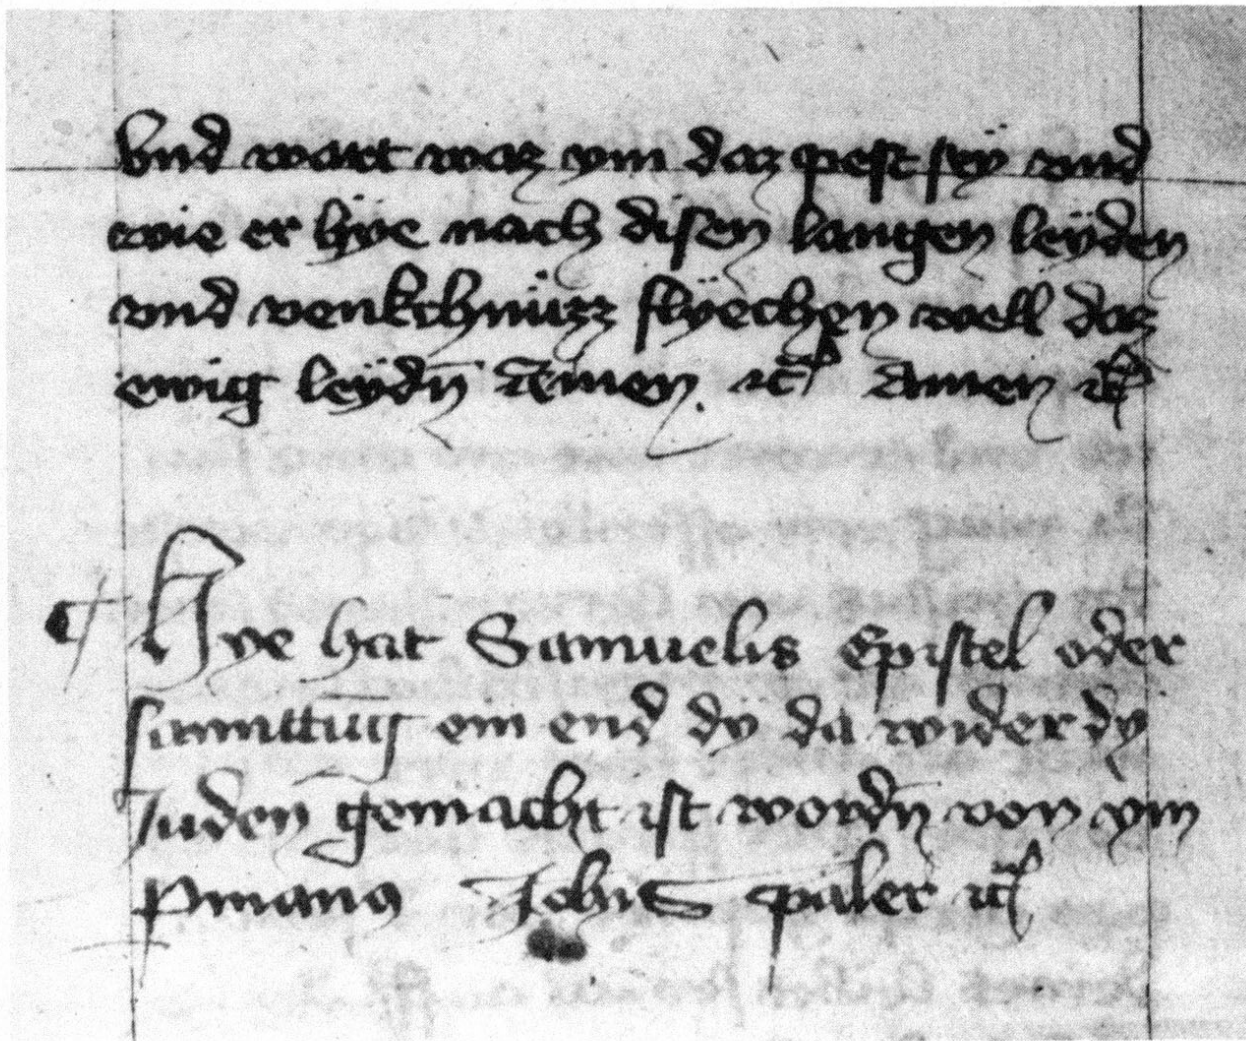 Vnd wartt waz ym daz pest sey vnd
wie er hÿe nach disen langen leÿden
vnd venkchnüzz flÿechen well daz
ewig leÿdn̄ Amen. ꝛc̄ Amen ꝛc̄
¶ Hye hat Samuelis Epistel oder
samttūg ein end dÿ da wider dy
Juden gemacht ist wordn̄ von ym
p manus Joh̄is paler ꝛc̄